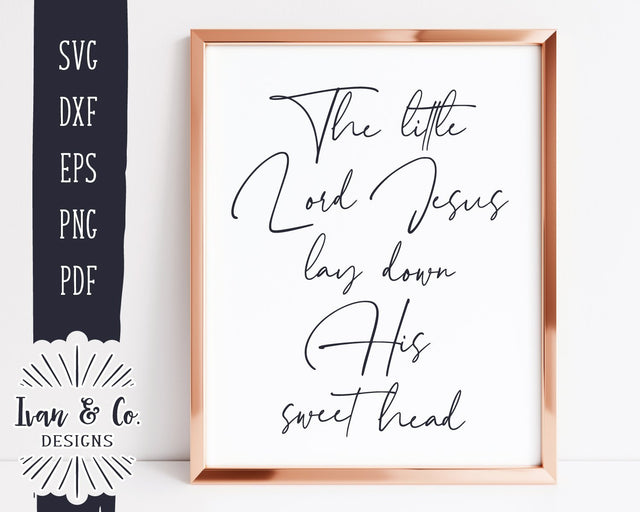 SVG
DXF
EPS
PNG
PDF
Ivan & Co.
DESIGNS
The little
Lord Jesus
lay down
His
sweet head